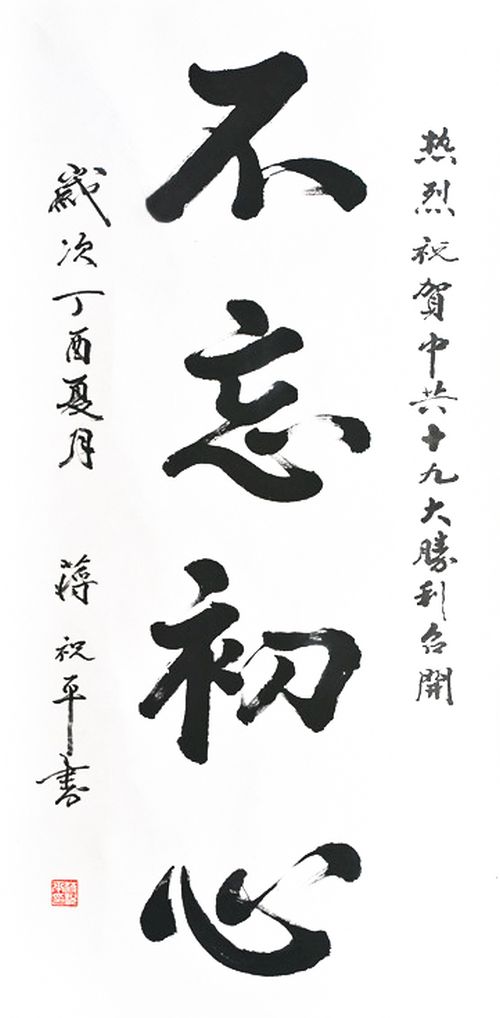 热烈祝贺中共十九大勝利召開
不忘初心
歲次丁酉夏月 蒋祝平書